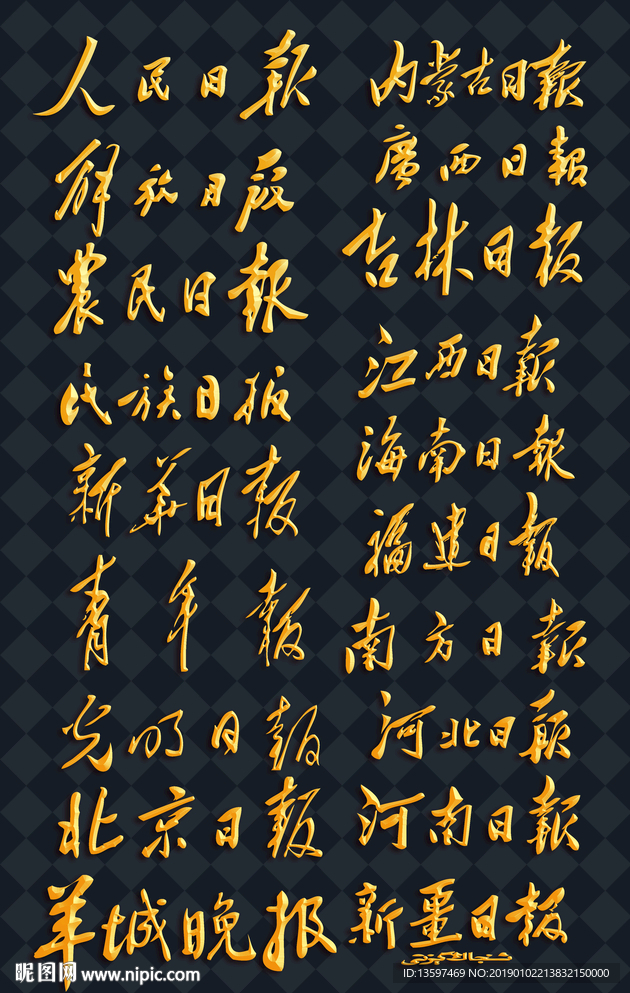 人民日報
解放日报
農民日報
民族日报
新华日报
青年报
光明日報
北京日报
羊城晚报
内蒙古日報
廣西日報
吉林日报
江西日報
海南日報
福建日报
南方日報
河北日報
河南日報
新疆日报
شىنجاڭ گېزىتى
昵图网 www.nipic.com
ID:13597469 NO:20190102213832150000